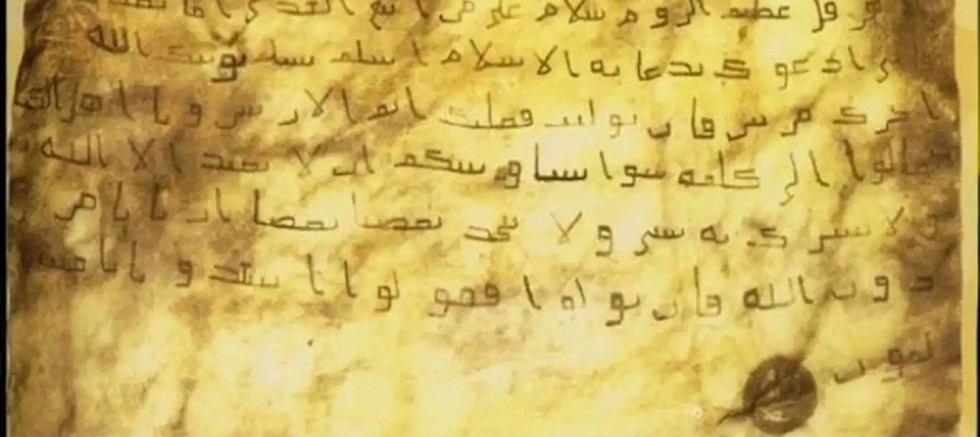 هرقل عظيم الروم سلام على من اتبع الهدى اما بعد
فانى ادعوك بدعاية الاسلام اسلم تسلم يوتك الله
اجرك مرتين فان توليت فعليك اثم الاريسين ويا اهل الكتاب
تعالوا الى كلمة سوا بيننا وبينكم ان لا نعبد الا الله
و لا نشرك به شى و لا يتخذ بعضنا بعضا اربابا من
دون الله فان تولوا فقولوا اشهدوا بانا مس
لمون